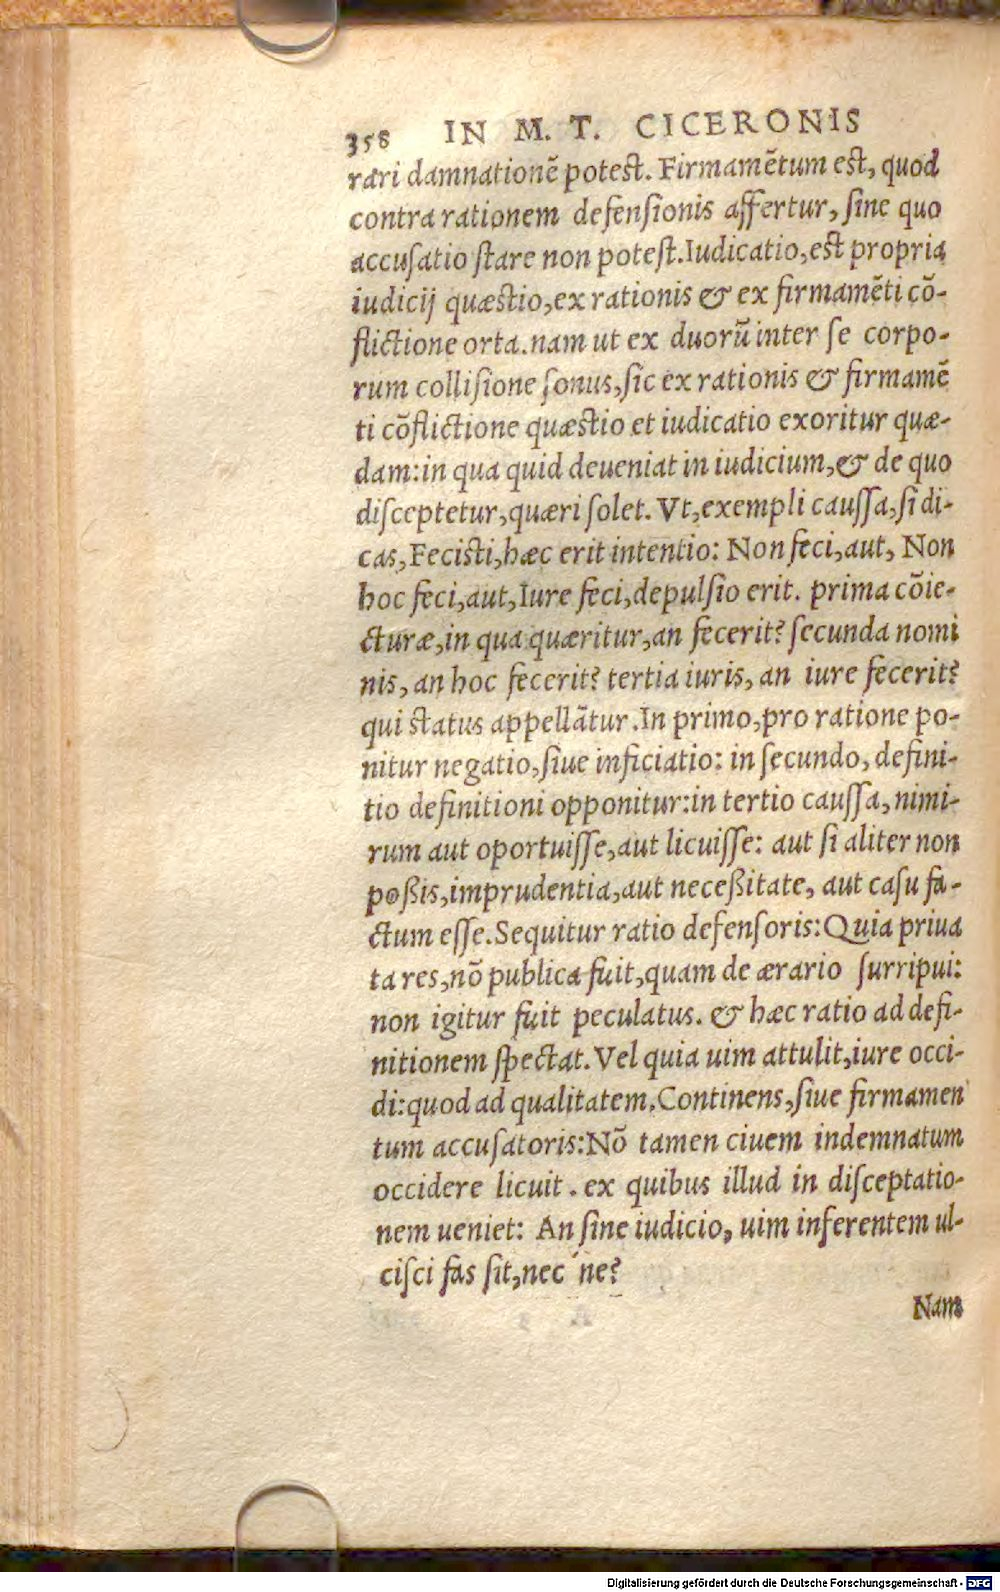 358 IN M. T. CICERONIS
rari damnationē potest. Firmamētum est, quod
contra rationem defensionis affertur, sine quo
accusatio stare non potest. Iudicatio, est propria
iudicij quæstio, ex rationis & ex firmamēti cō-
flictione orta. nam ut ex duorū inter se corpo-
rum collisione sonus, sic ex rationis & firmamē
ti cōflictione quæstio et iudicatio exoritur quæ-
dam: in qua quid deueniat in iudicium, & de quo
disceptetur, quæri solet. Vt, exempli caussa, si di-
cas, Fecisti, hæc erit intentio: Non feci, aut, Non
hoc feci, aut, Iure feci, depulsio erit. prima cōie-
cturæ, in qua quæritur, an fecerit? secunda nomi
nis, an hoc fecerit? tertia iuris, an iure fecerit?
qui status appellātur. In primo, pro ratione po-
nitur negatio, siue inficiatio: in secundo, defini-
tio definitioni opponitur: in tertio caussa, nimi-
rum aut oportuisse, aut licuisse: aut si aliter non
poßis, imprudentia, aut neceßitate, aut casu fa-
ctum esse. Sequitur ratio defensoris: Quia priua
ta res, nō publica fuit, quam de ærario surripui:
non igitur fuit peculatus. & hæc ratio ad defi-
nitionem spectat. Vel quia uim attulit, iure occi-
di: quod ad qualitatem. Continens, siue firmamen
tum accusatoris: Nō tamen ciuem indemnatum
occidere licuit. ex quibus illud in disceptatio-
nem ueniet: An sine iudicio, uim inferentem ul-
cisci fas sit, nec ́ne?
Nam
Digitalisierung gefördert durch die Deutsche Forschungsgemeinschaft - DFG